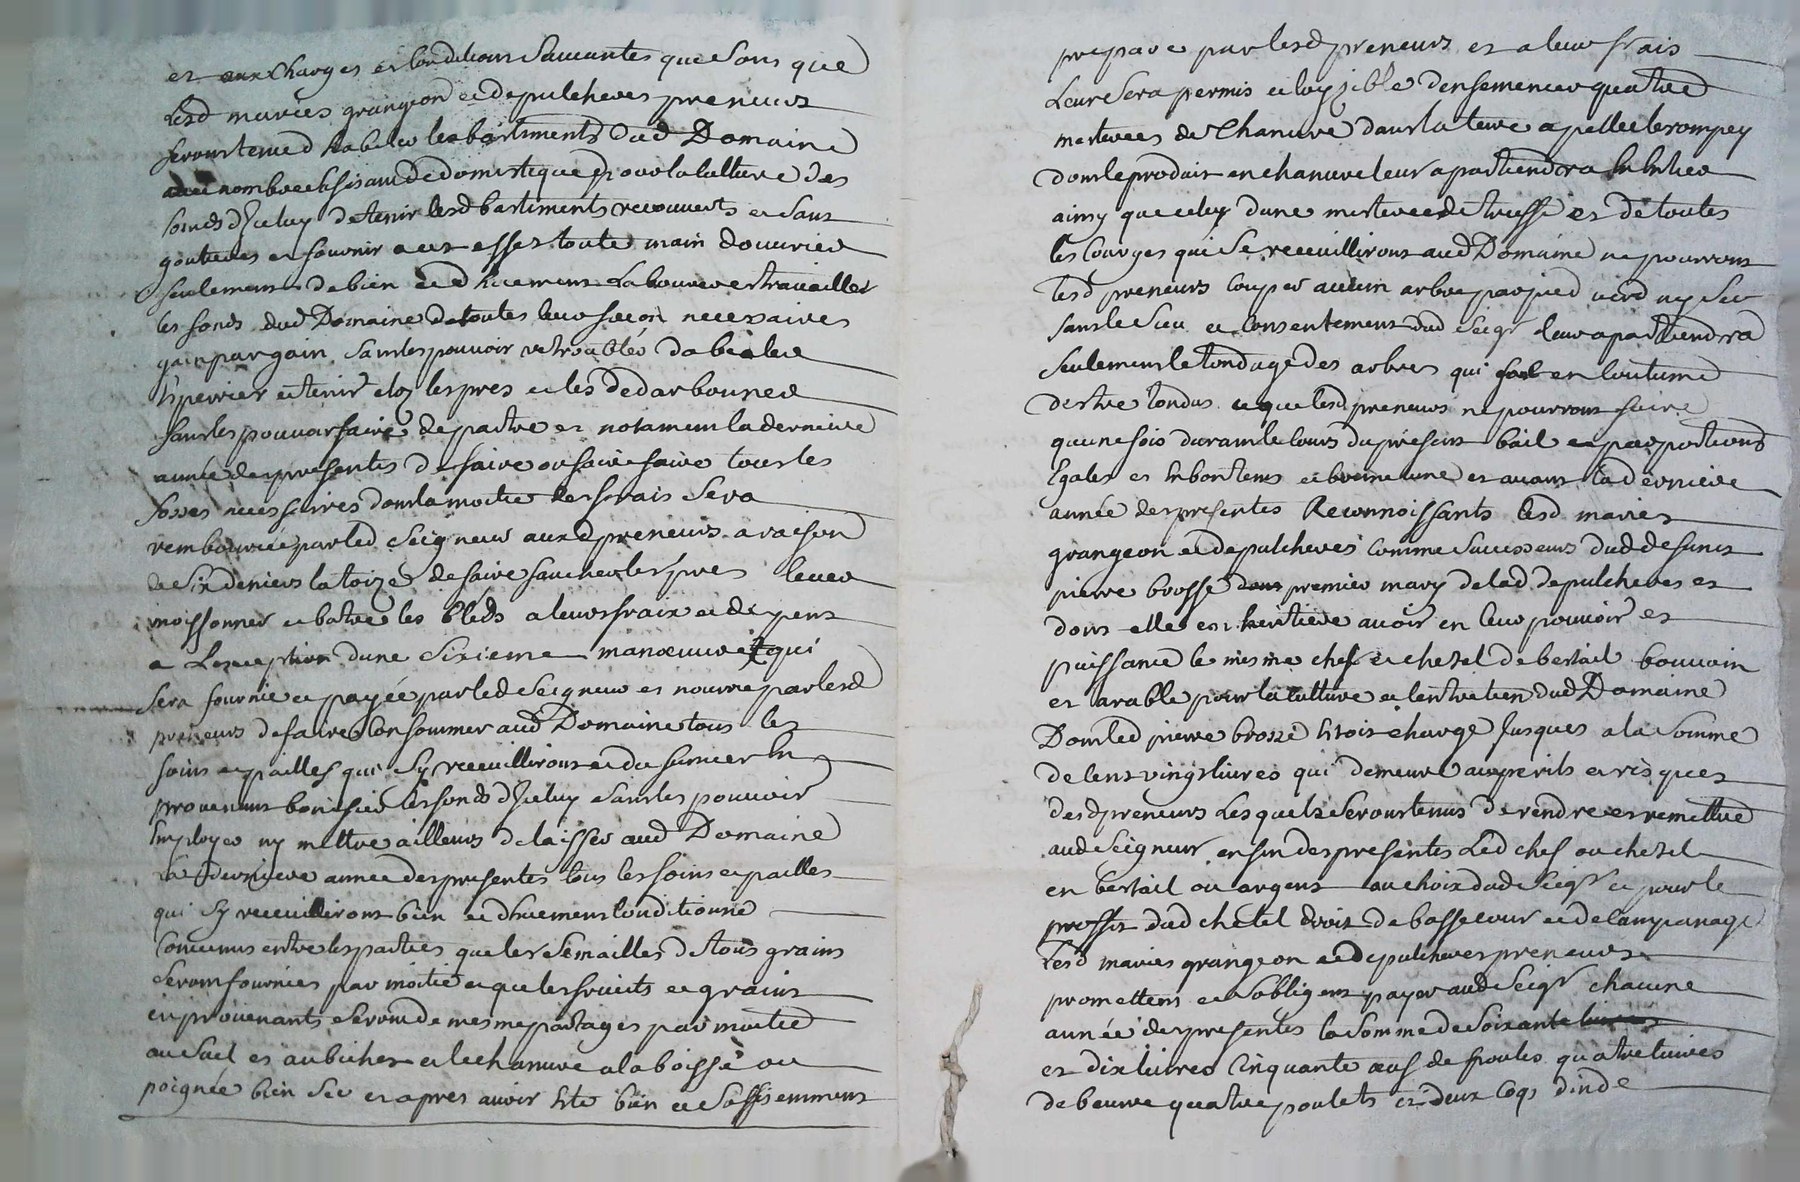 et aux charges et conditions suivantes que sont que
lesd mariés grangeon et depulcheres preneurs
seront tenus habiter les bastiments dud Domaine
avec nombre suffisant de domestique pour la culture des
fonds d'Iceluy de tenir lesd bastiments recouverts et sans
goutieres et fournir a cet effet toute main douvrier
seulement de bien et dhuement Labourer et travailler
les fonds dud Domaine de toutes leurs facon necessaires
gain par gain sans les pouvoir retroubles dabialer
Esperrier et tenir cloz les pres et les dedarbouner
sans les pouvoir faire depaitre et notament la derniere
année des presentes de faire ou faire faire tous les
fosses necessaires dont la moitie des frais sera
remboursée par led Seigneur auxd preneurs a raison
de Six deniers la toize de faire faucher les pres lever
moissonner et batre les bleds a leurs fraix et depens
a Lexception dune Sixieme manœuvre qui
sera fournie et payée par led Seigneur et nourrie par lesd
preneurs de faire consommer aud Domaine tous les
foins et pailles qui Sy receuilliront et du fumier En
provenant bonifier les fonds d'Iceluy sans les pouvoir
Employer ny mettre ailleurs de laisser aud Domaine
La derniere année des presentes tous les foins et pailles
qui Sy receuilliront bien et dhuement conditionné
Convenus entre les parties que les semailles de tous grains
seront fournies par moitié et que les fruits et grains
en provenants seront de mesme partages par moitié
au sael et au bichet et le chanvre a la boisse ou
poignée bien sec et apres avoir Eté bien et suffisemment
prepare par lesd preneurs et a leur frais
Leur sera permis et loyzible densemencer quatre
mesterees de Chanvre dans la terre apellee le rompey
dont le produit en chanvre leur apartiendra En Entier
ainsy que celuy dune mesteree de truffe et de toutes
les Courges qui se receuilliront aud Domaine ne pourront
lesd preneurs couper aucun arbre par pied verd ny sec
sans le sceu et consentement dud Seigr leur apartiendra
seulement le tondage des arbres qui sont en coutume
destre tondus et que lesd preneurs ne pourront faire
qu'une fois durant le cours du present bail et par portions
Egales et En bon tems et bonne lune et avant la derniere
année des presentes Reconnoissants lesd mariés
grangeon et depulcheres comme successeurs dud defunt
pierre brosse premier mary de lad depulcheres et
dont elle est heritiere avoir en leur pouvoir et
puissance le mesme chef et chetel de bestail bouvain
et arable pour la culture et lentretien dud Domaine
Dont led pierre brosse Etoit chargé Jusques a la somme
de Cent vingt livres qui demeure aux perils et risques
desd preneurs Lesquels seront tenus de rendre et remettre
aud Seigneur en fin des presentes Led chef ou chetel
en bestail ou argent au choix dud Seigr et pour le
proffit dud chetel droit de bassecour et de campanage
Lesd mariés grangeon et depulcheres preneurs
promettent et sobligent payer aud Seigr chacune
année des presentes la somme de soixante
et dix livres cinquante œufs de poules quatre livres
de beurre quatre poulets et deux coqs dinde